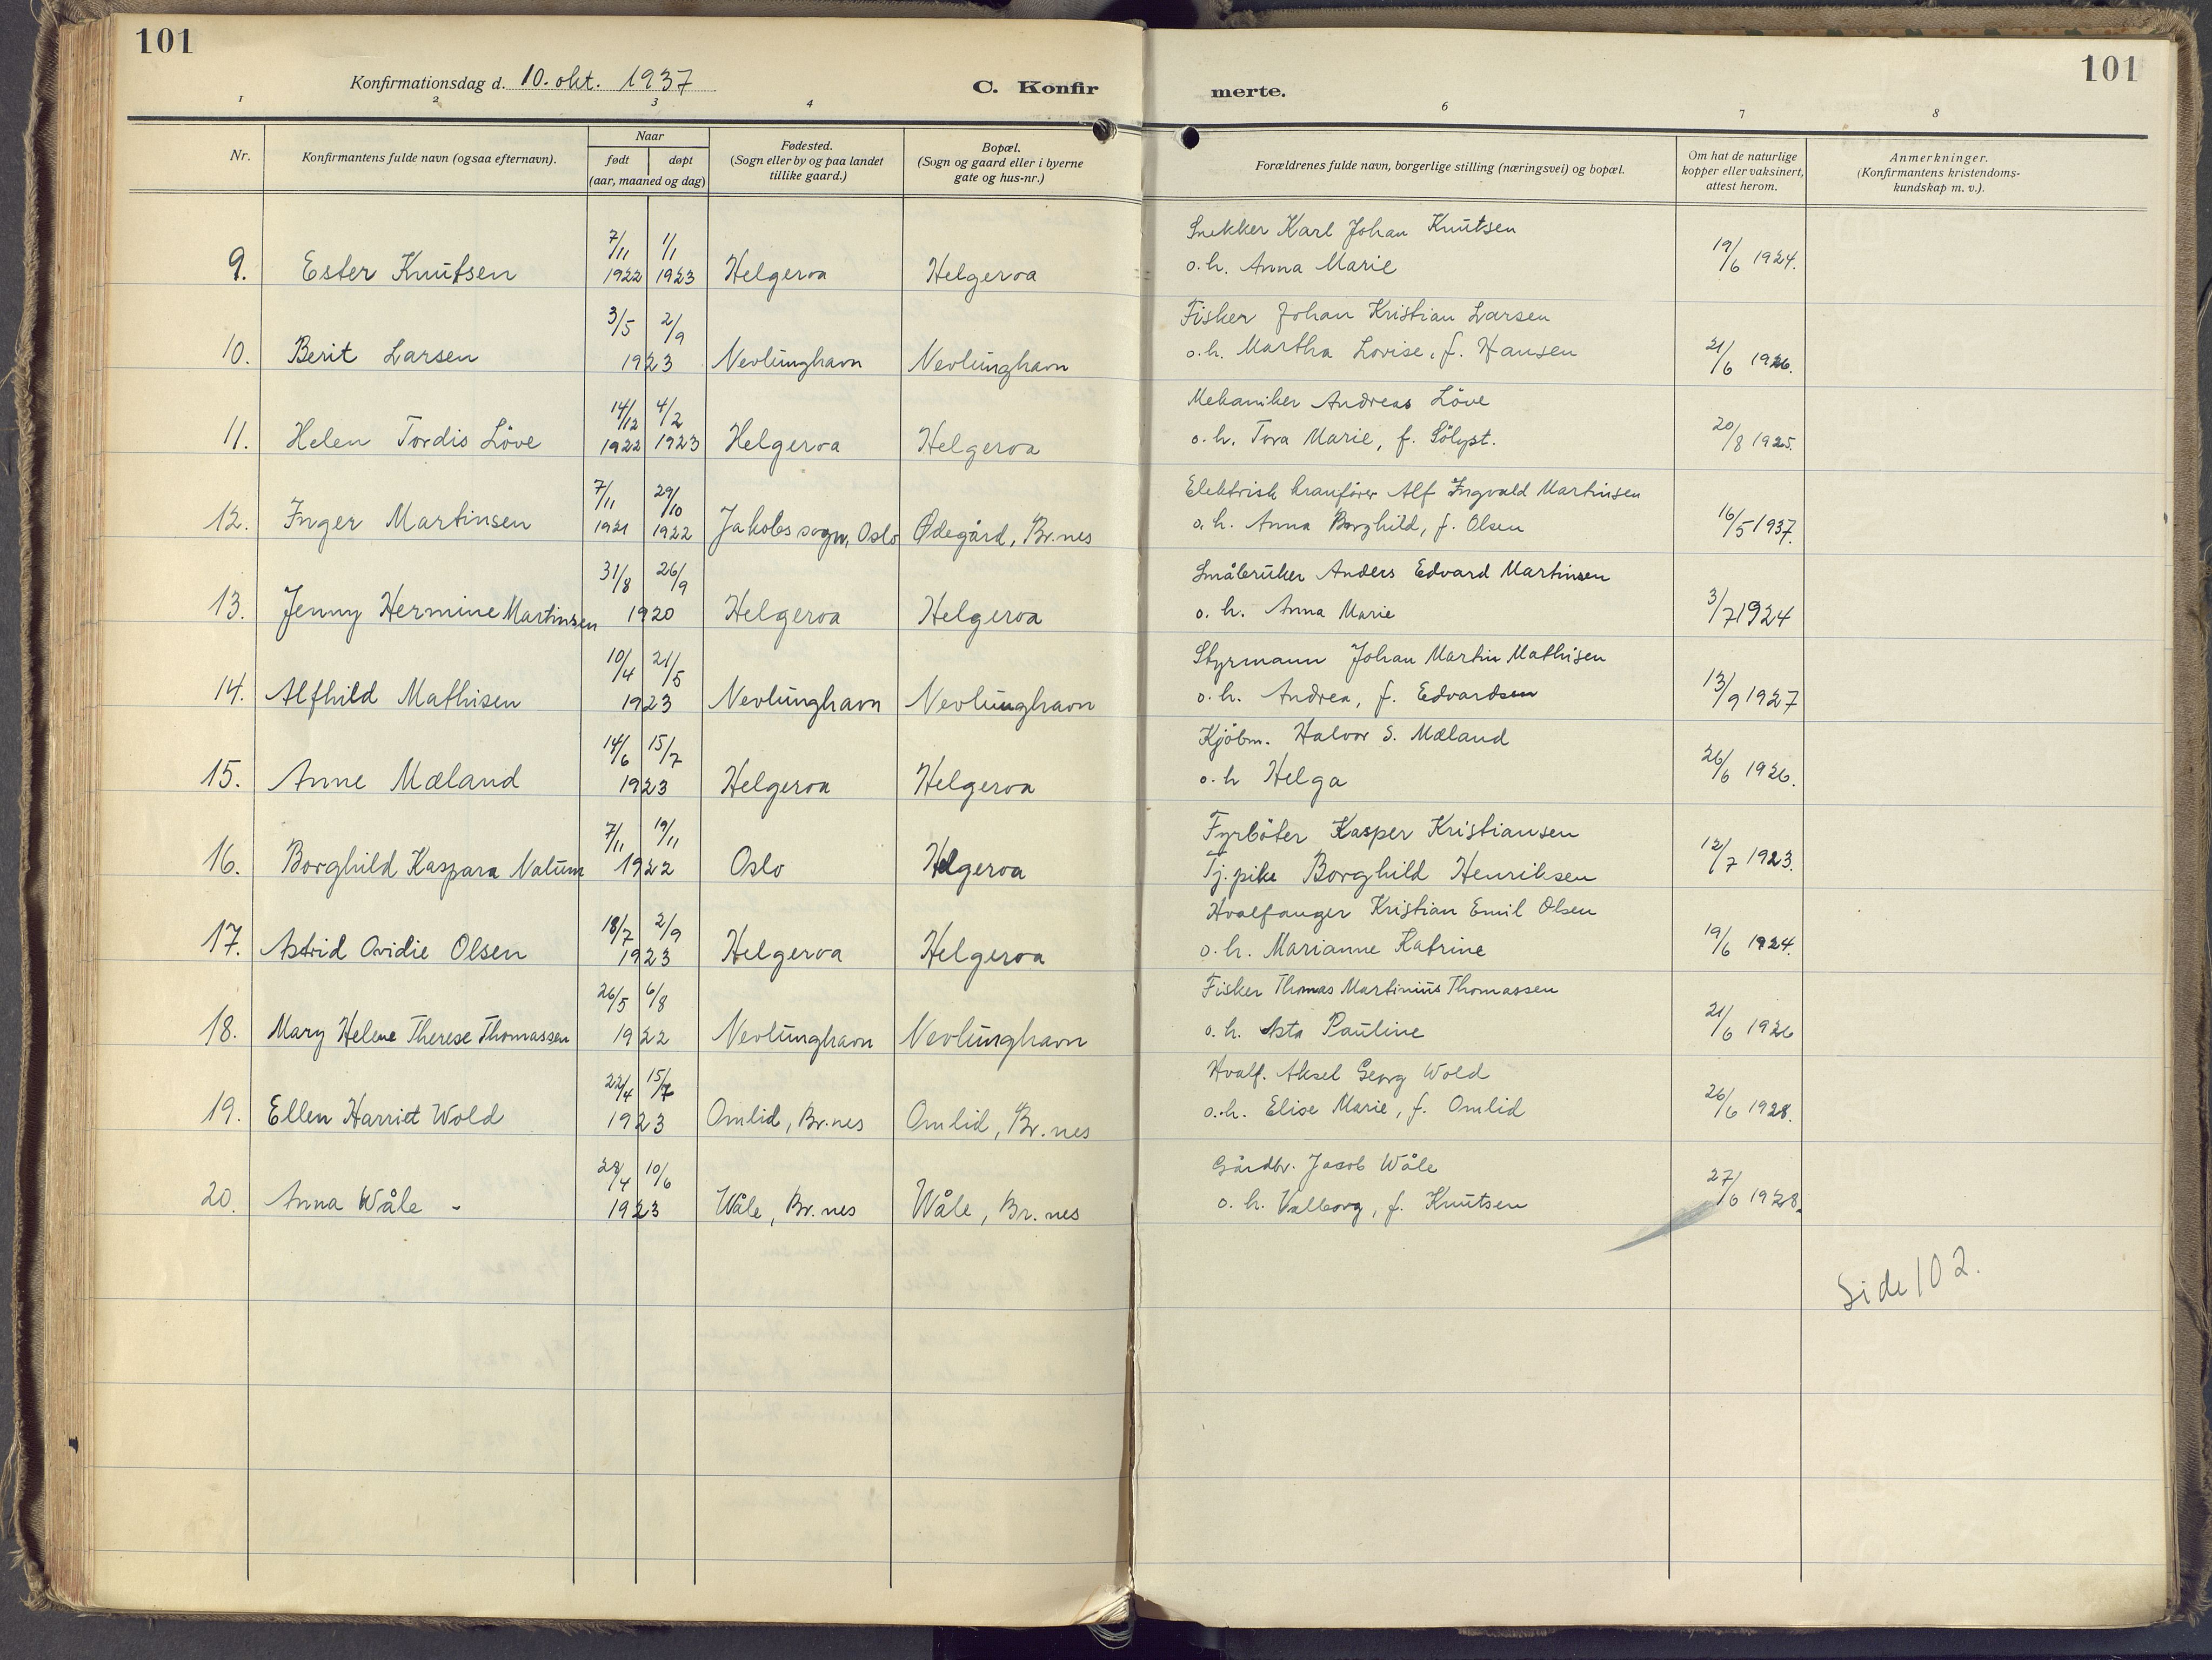 101
101
Konfirmationsdag d. 10. okt. 1937
C. Konfirmerte.
1 2 3 4 6 7 8
Nr.
Konfirmantens fulde navn (ogsaa efternavn).
Naar
født døpt
(aar, maaned og dag)
Fødested.
(Sogn eller by og paa landet
tillike gaard.)
Bopæl.
(Sogn og gaard eller i byerne
gate og hus-nr.)
Forældrenes fulde navn, borgerlige stilling (næringsvei) og bopæl.
Om hat de naturlige
kopper eller vaksinert,
attest herom.
Anmerkninger.
(Konfirmantens kristendoms-
kundskap m. v.).
7/11 1/1 Snekker Karl Johan Knutsen
9. Ester Knutsen 1922 1923 Helgeroa Helgeroa o. h. Anna Marie 19/6 1924.
3/5 2/9 Fisker Johan Kristian Larsen
10. Berit Larsen 1923 Nevlunghavn Nevlunghavn o. h. Martha Lovise, f. Hansen 21/6 1926.
14/12 4/2 Mekaniker Andreas Löve
11. Helen Tordis Löve 1922 1923 Helgeroa Helgeroa o. h. Tora Marie, f. Sölyst. 20/8 1925.
7/11 29/10 Elektrisk kranförer Alf Ingvald Martinsen
12. Inger Martinsen 1921 1922 Jakobs sogn, Oslo Ødegård, Br.nes o. h. Anna Borghild, f. Olsen 16/5 1937.
31/8 26/9 Småbruker Anders Edvard Martinsen
13. Jenny Hermine Martinsen 1920 Helgeroa Helgeroa o. h. Anna Marie 3/7 1924
10/4 21/5 Styrmann Johan Martin Mathisen
14. Alfhild Mathisen 1923 Nevlunghavn Nevlunghavn o. h. Andrea, f. Edvardsen 13/9 1927
14/6 15/7 Kjöbm. Halvor S. Mæland
15. Anne Mæland 1923 Helgeroa Helgeroa o. h Helga 26/6 1926.
7/11 19/11 Fyrböter Kasper Kristiansen
16. Borghild Kaspara Nalum 1922 Oslo Helgeroa Tj. pike Borghild Henriksen 12/7 1923.
18/7 2/9 Hvalfanger Kristian Emil Olsen
17. Astrid Ovidie Olsen 1923 Helgeroa Helgeroa o. h. Marianne Katrine 19/6 1924.
26/5 6/8 Fisker Thomas Martinius Thomassen
18. Mary Helene Therese Thomassen 1922 Nevlunghavn Nevlunghavn o. h. Asta Pauline 21/6 1926
22/4 15/7 Hvalf. Aksel Georg Wold
19. Ellen Harriet Wold 1923 Omlid, Br.nes Omlid, Br.nes o. h. Elise Marie, f. Omlid 26/6 1928.
28/4 10/6 Gårdbr. Jacob Wåle
20. Anna Wåle - 1923 Wåle, Br. nes Wåle, Br. nes o. h. Valborg, f. Knutsen 27/6 1928.
Side 102.